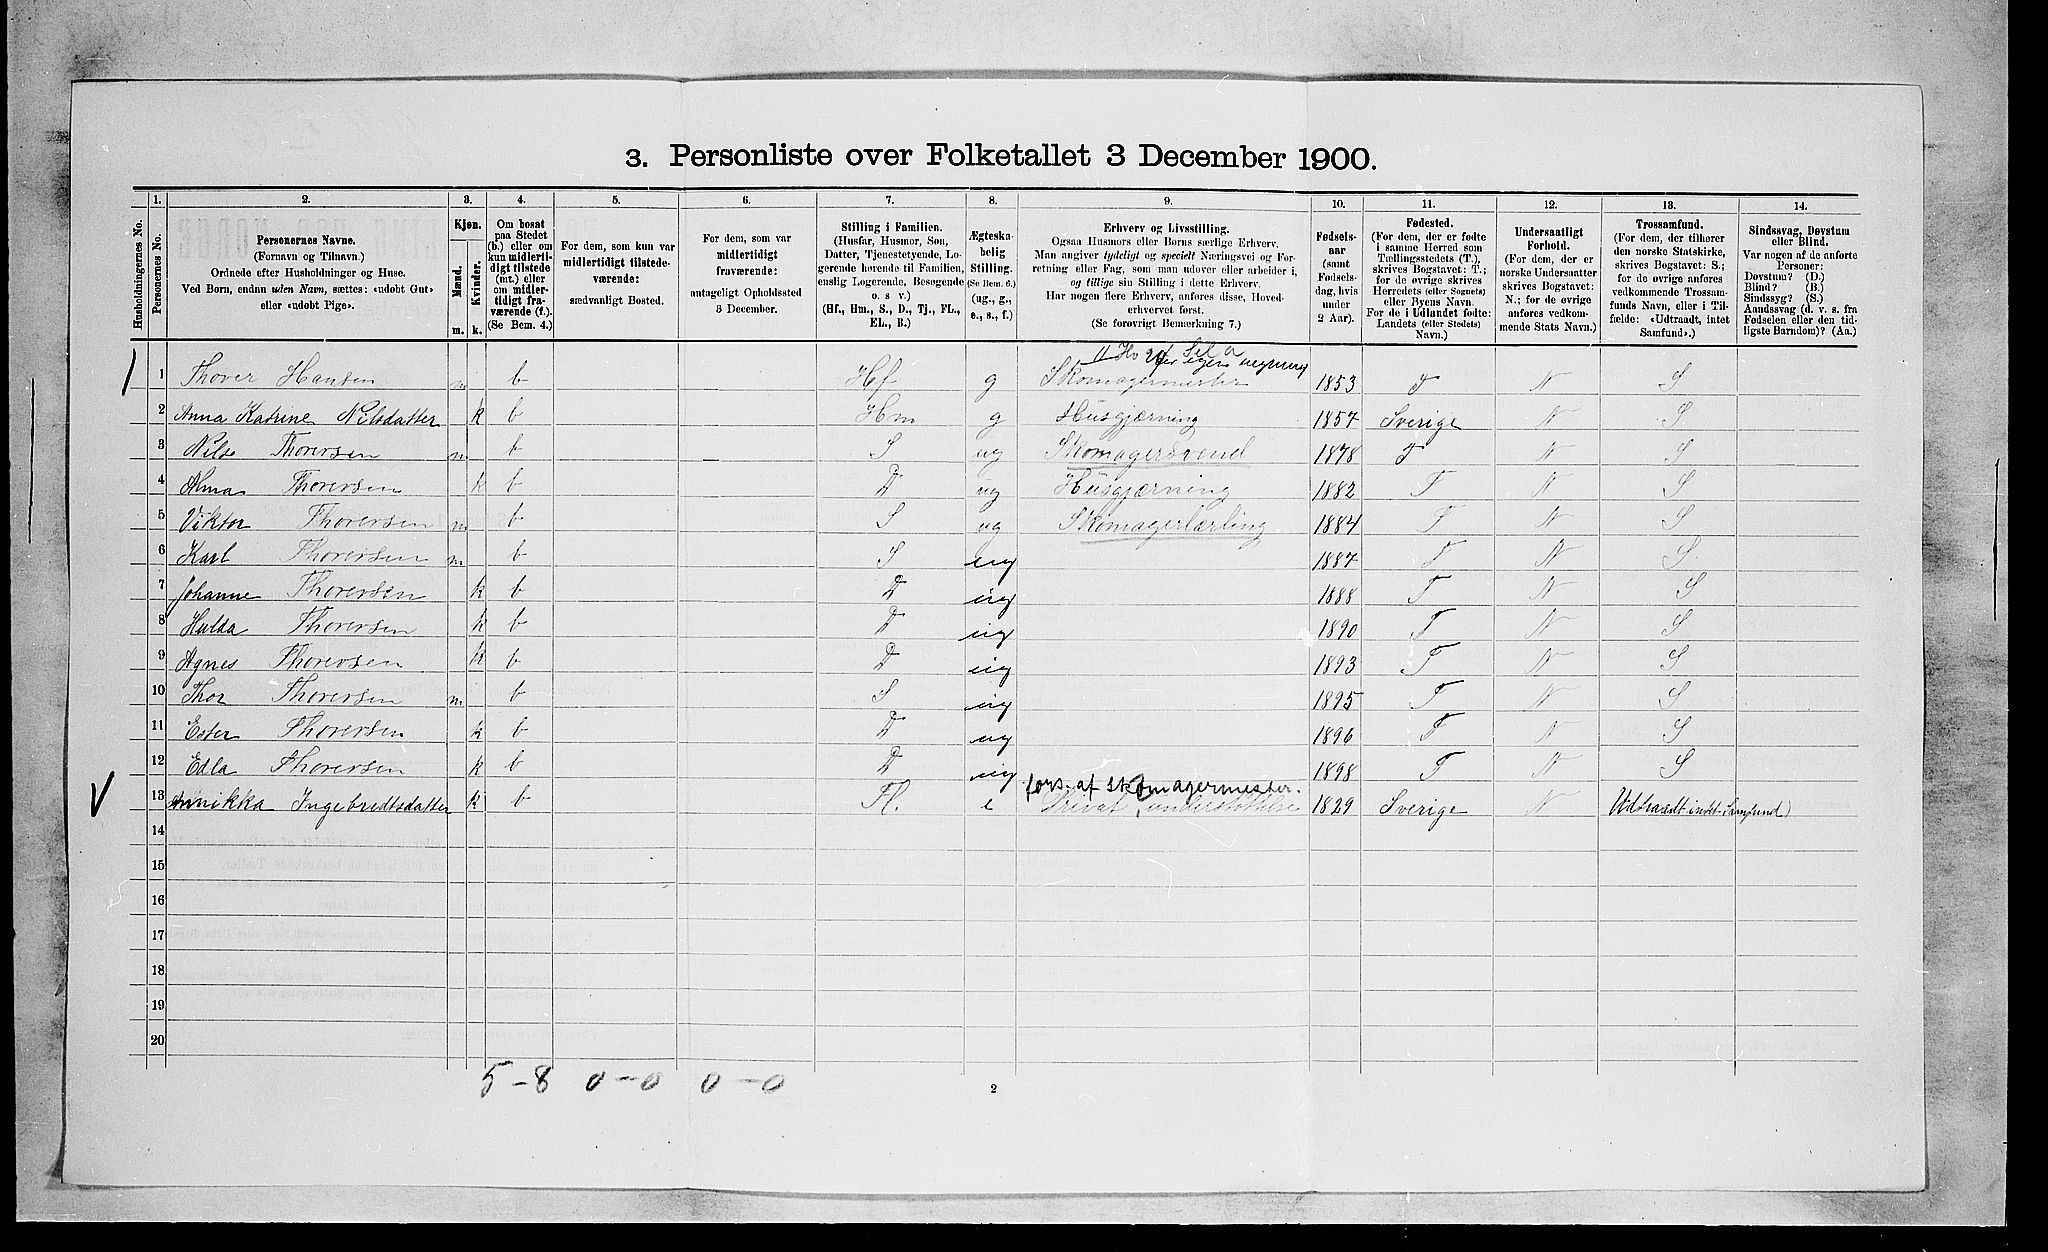 3. Personliste over Folketallet 3 December 1900.
1. 2. 3. 4. 5. 6. 7. 8. 9. 10. 11. 12. 13. 14.
Husholdningernes No.
Personernes No.
Personernes Navne.
(Fornavn og Tilnavn.)
Ordnede efter Husholdninger og Huse.
Ved Børn, endnu uden Navn, sættes: «udøbt Gut»
eller «udøbt Pige».
Kjøn.
Mænd.
Kvinder.
m. k.
Om bosat
paa Stedet
(b.) eller om
kun midlerti-
digt tilstede
(mt.) eller
om midler-
tidigt fra-
værende (f.).
(Se Bem. 4.)
For dem, som kun var
midlertidigt tilstede-
værende:
sædvanligt Bosted.
For dem, som var
midlertidigt
fraværende:
antageligt Opholdssted
3 December.
Stilling i Familien.
(Husfar, Husmor, Søn,
Datter, Tjenestetyende, Lo-
gerende hørende til Familien,
enslig Logerende, Besøgende
o. s. v.)
(Hf., Hm., S., D., Tj., FL.,
EL., B.)
Ægteska-
belig
Stilling.
(Se Bem. 6.)
(ug., g.,
e., s., f.)
Erhverv og Livsstilling.
Ogsaa Husmors eller Børns særlige Erhverv.
Man angiver tydeligt og specielt Næringsvei og For-
retning eller Fag, som man udøver eller arbeider i,
og tillige sin Stilling i dette Erhverv.
Har nogen flere Erhverv, anføres disse, Hoved-
erhvervet først.
(Se forøvrigt Bemerkning 7.)
Fødsels-
aar
(samt
Fødsels-
dag, hvis
under
2 Aar).
Fødested.
(For dem, der er fødte
i samme Herred som
Tællingsstedets (T.),
skrives Bogstavet: T.;
for de øvrige skrives
Herredets (eller Sognets)
eller Byens Navn.
For de i Udlandet fødte:
Landets (eller Stedets)
Navn.)
Undersaatligt
Forhold.
(For dem, der er
norske Undersaatter
skrives Bogstavet:
N.; for de øvrige
anføres vedkom-
mende Stats Navn.)
Trossamfund.
(For dem, der tilhører
den norske Statskirke,
skrives Bogstavet: S.;
for de øvrige anføres
vedkommende Trossam-
funds Navn, eller i Til-
fælde: «Udtraadt, intet
Samfund».)
Sindssvag, Døvstum
eller Blind.
Var nogen af de anførte
Personer:
Døvstum? (D.)
Blind? (B.)
Sindssyg? (S.)
Aandssvag (d. v. s. fra
Fødselen eller den tid-
ligste Barndom)? (Aa.)
1 Thover Hansen m b Hf g Skomagermester for egen regning 1853 T N S
2 Anna Katrine Nilsdatter k b Hm g Husgjærning 1857 Sverige N S
3 Nils Thorersen m b S ug Skomagersvend 1878 T N S
4 Alma Thorersen k b D ug Husgjærning 1882 T N S
5 Viktor Thorersen m b S ug Skomagerlærling 1884 T N S
6 Karl Thorersen m b S ug 1887 T N S
7 Johanne Thorersen k b D ug 1888 T N S
8 Hulda Thorersen k b D ug 1890 T N S
9 Agnes Thorersen k b D ug 1893 T N S
10 Thor Thorersen m b S ug 1895 T N S
11 Ester Thorersen k b D ug 1896 T N S
12 Edla Thorersen k b D ug 1898 T N S
fors. af skomagermester.
13 Annikka Ingebredtsdatter k b Fl. e Privat understøttelse 1829 Sverige N Udtraadt intet Samfund)
14
15
16
17
18
19
20
5-8 0-0 0-0
2